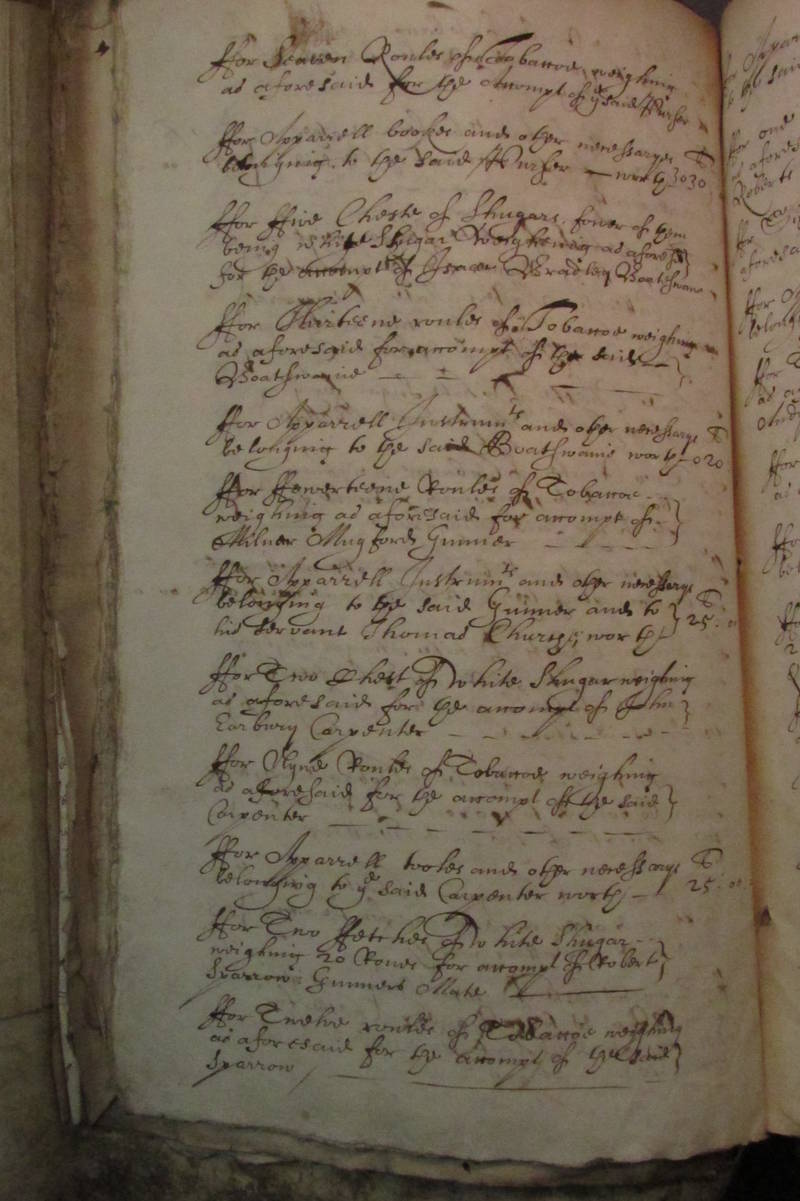 ffor Seaven Roules of Tobaccoe weighing
as aforesaid for the Accompt of ye said Purser
ffor Apparrell bookes and other necessaryes
belonging to the said Purser worth 3030
ffor ffive Cheste of Shugars, fower of them
being white Shugar Weighing as aforesd
for the accompt of Bradley Boatswane
ffor Thirteene roules of Tobaccoe weighing
as aforesaid for accompt of the said
Boatswaine
ffor Apparrell Instrumts and other necessarye
belonging to the said Boatswaine worth 020
ffor ffowerteene Roules of Tobaccoe
weighing as aforesaid for accompt of
Milner Mugford Gunner
ffor Apparrell Instrumts and other necessarye
belonging to the said Gunner and to
his servant Thomas worth 25
ffor Two Chest of white Shugar weighing
as aforesaid for the accompt of John
Earbury Carpenter
ffor Nyne Roules of Tobaccoe weighing
as aforesaid for the accompt of the said
Carpenter
ffor Apparrell tooles and other necessarye
belonging to ye said Carpenter worth 25
ffor Two ffetches of white Shugar
weighing 20 Roves for accompt of Robert
Sparrow Gunners Mate
ffor Twelve roules of Tobaccoe weighing
as aforesaid for the accompt of the said
Sparrow